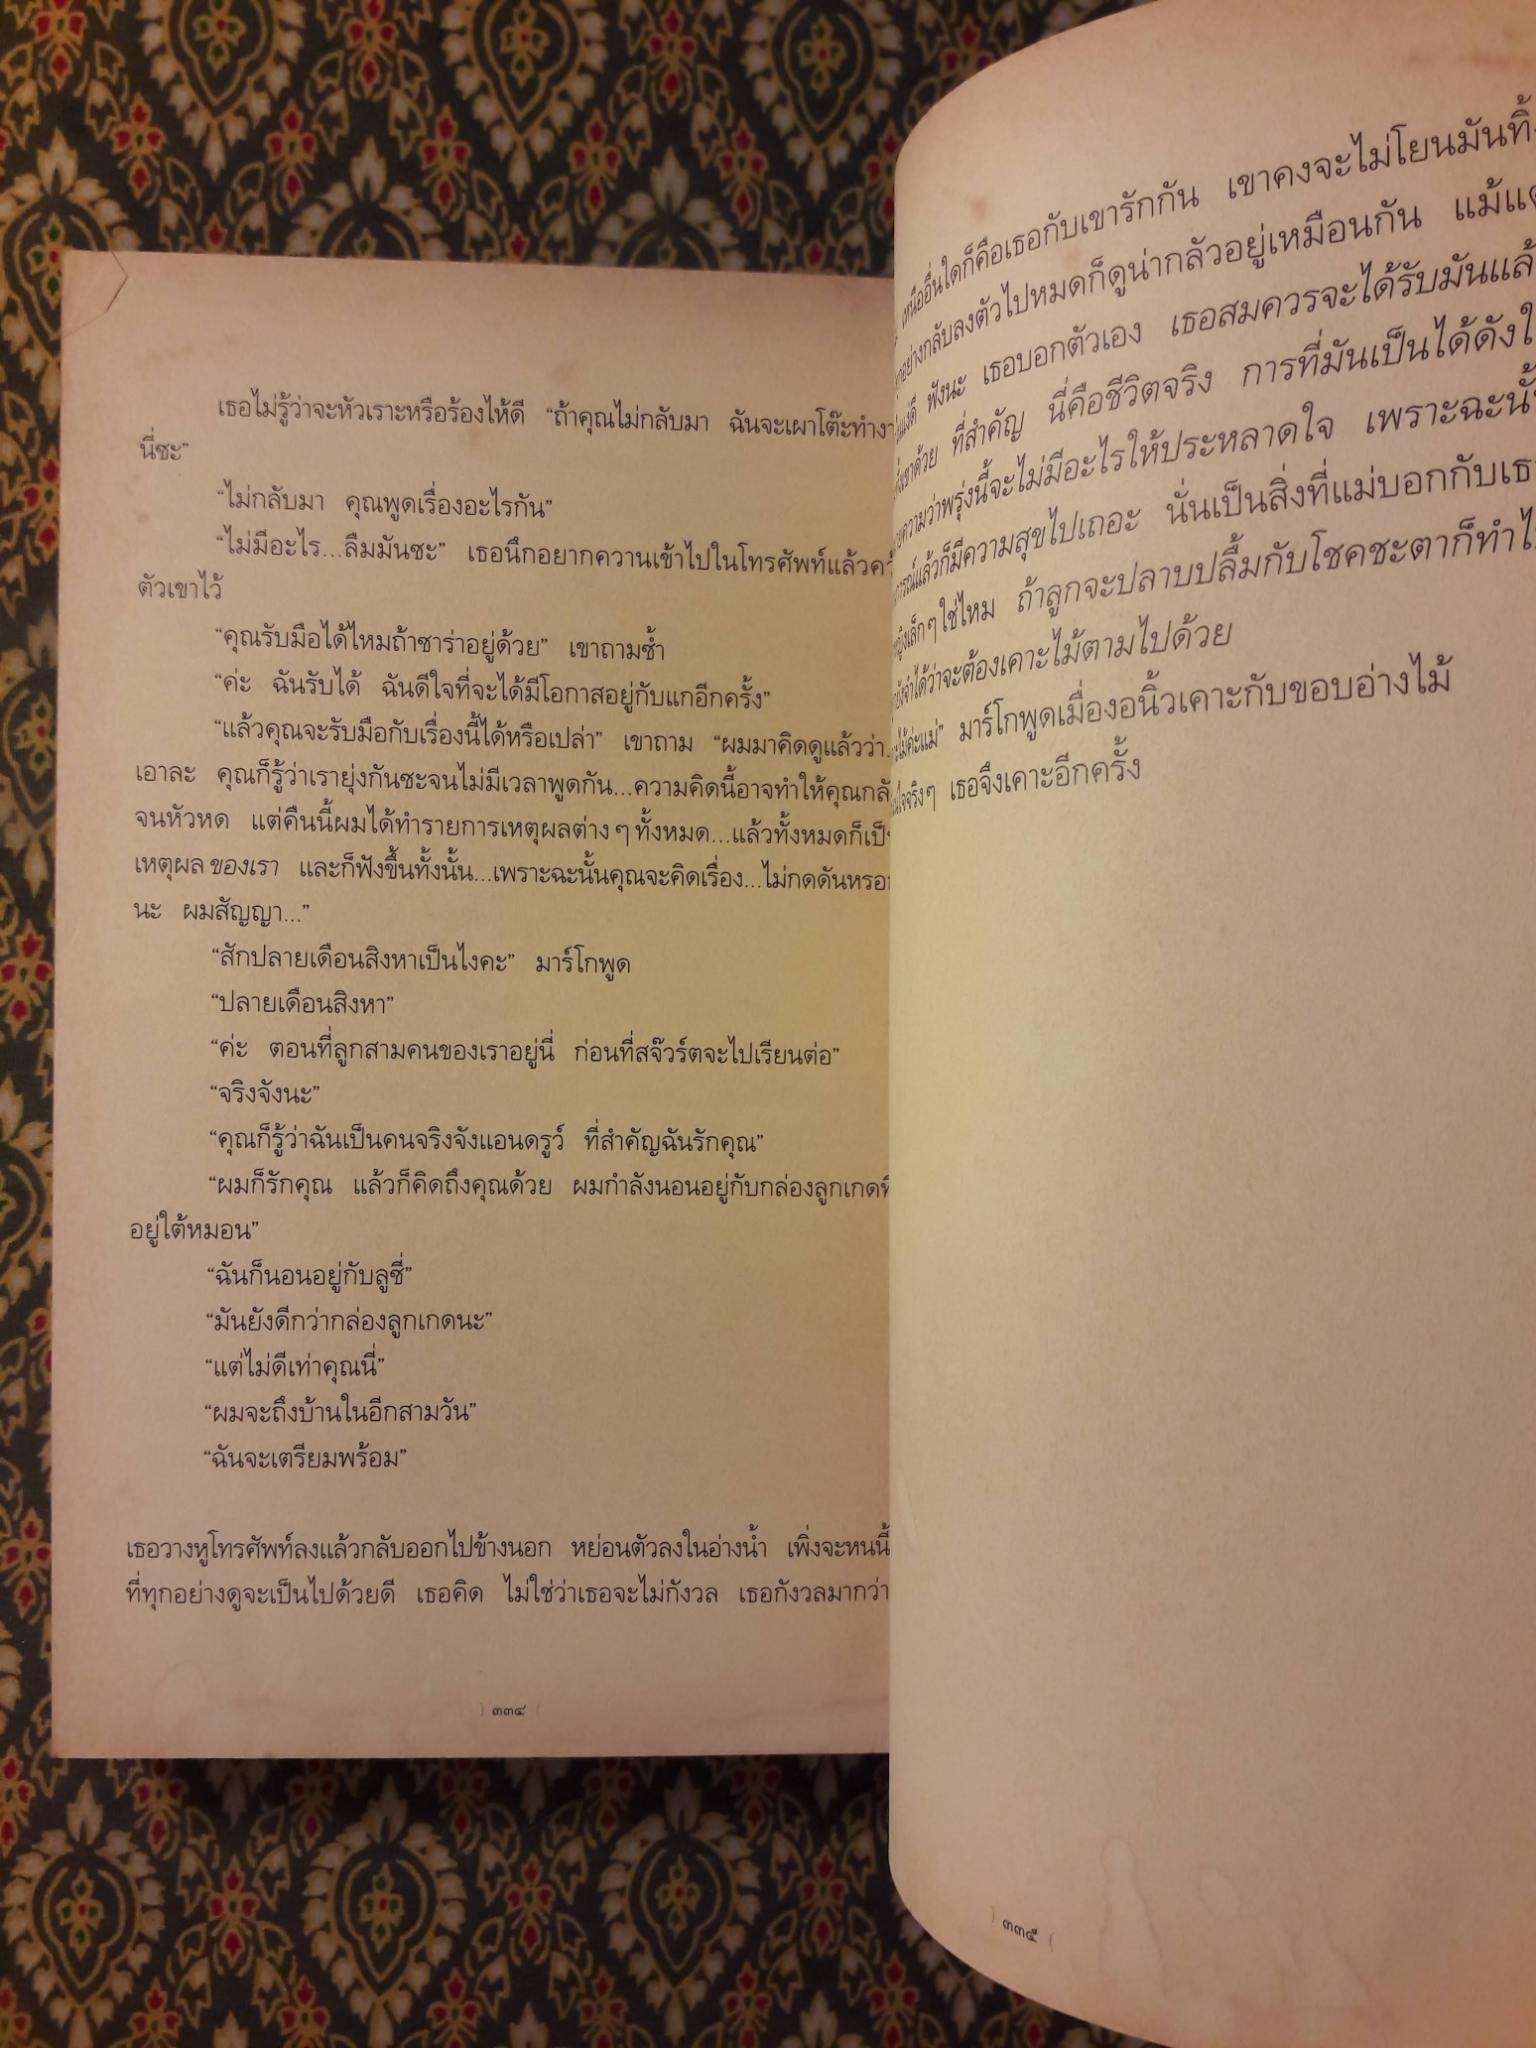 เธอไม่รู้ว่าจะหัวเราะหรือร้องไห้ดี “ถ้าคุณไม่กลับมา ฉันจะเผาโต๊ะทำงา
นี่ซะ”
“ไม่กลับมา คุณพูดเรื่องอะไรกัน”
“ไม่มีอะไร...ลืมมันซะ” เธอนึกอยากควานเข้าไปในโทรศัพท์แล้วคว้
ตัวเขาไว้
“คุณรับมือได้ไหมถ้าซาร่าอยู่ด้วย” เขาถามซ้ำ
“ค่ะ ฉันรับได้ ฉันดีใจที่จะได้มีโอกาสอยู่กับแกอีกครั้ง”
“แล้วคุณจะรับมือกับเรื่องนี้ได้หรือเปล่า” เขาถาม “ผมมาคิดดูแล้วว่า...
เอาละ คุณก็รู้ว่าเรายุ่งกันซะจนไม่มีเวลาพูดกัน...ความคิดนี้อาจทำให้คุณกลั
จนหัวหด แต่คืนนี้ผมได้ทำรายการเหตุผลต่าง ๆ ทั้งหมด...แล้วทั้งหมดก็เป็
เหตุผล ของเรา และก็ฟังขึ้นทั้งนั้น...เพราะฉะนั้นคุณจะคิดเรื่อง...ไม่กดดันหรอก
นะ ผมสัญญา...”
“สักปลายเดือนสิงหาเป็นไงคะ” มาร์โกพูด
“ปลายเดือนสิงหา”
“ค่ะ ตอนที่ลูกสามคนของเราอยู่นี่ ก่อนที่สจ๊วร์ตจะไปเรียนต่อ”
“จริงจังนะ”
“คุณก็รู้ว่าฉันเป็นคนจริงจังแอนดรูว์ ที่สำคัญฉันรักคุณ”
“ผมก็รักคุณ แล้วก็คิดถึงคุณด้วย ผมกำลังนอนอยู่กับกล่องลูกเกดที่
อยู่ใต้หมอน”
“ฉันก็นอนอยู่กับลูซี่”
“มันยังดีกว่ากล่องลูกเกดนะ”
“แต่ไม่ดีเท่าคุณนี่”
“ผมจะถึงบ้านในอีกสามวัน”
“ฉันจะเตรียมพร้อม”
เธอวางหูโทรศัพท์ลงแล้วกลับออกไปข้างนอก หย่อนตัวลงในอ่างน้ำ เพิ่งจะหนนี้
ที่ทุกอย่างดูจะเป็นไปด้วยดี เธอคิด ไม่ใช่ว่าเธอจะไม่กังวล เธอกังวลมากว่า
๓๓๔
เหนืออื่นใดก็คือเธอกับเขารักกัน เขาคงจะไม่โยนมันทิ้ง
กอย่างกลับลงตัวไปหมดก็ดูน่ากลัวอยู่เหมือนกัน แม้แต่
ฟังนะ เธอบอกตัวเอง เธอสมควรจะได้รับมันแล้
ด้วย ที่สำคัญ นี่คือชีวิตจริง การที่มันเป็นได้ดังใ
ความว่าพรุ่งนี้จะไม่มีอะไรให้ประหลาดใจ เพราะฉะนั้
การณ์แล้วก็มีความสุขไปเถอะ นั่นเป็นสิ่งที่แม่บอกกับเธ
เล็ก ๆ ใช่ไหม ถ้าลูกจะปลาบปลื้มกับโชคชะตาก็ทำไ
จำได้ว่าจะต้องเคาะไม้ตามไปด้วย
ไม้ค่ะแม่” มาร์โกพูดเมื่องอนิ้วเคาะกับขอบอ่างไม้
ใจจริง ๆ เธอจึงเคาะอีกครั้ง
๓๓๕